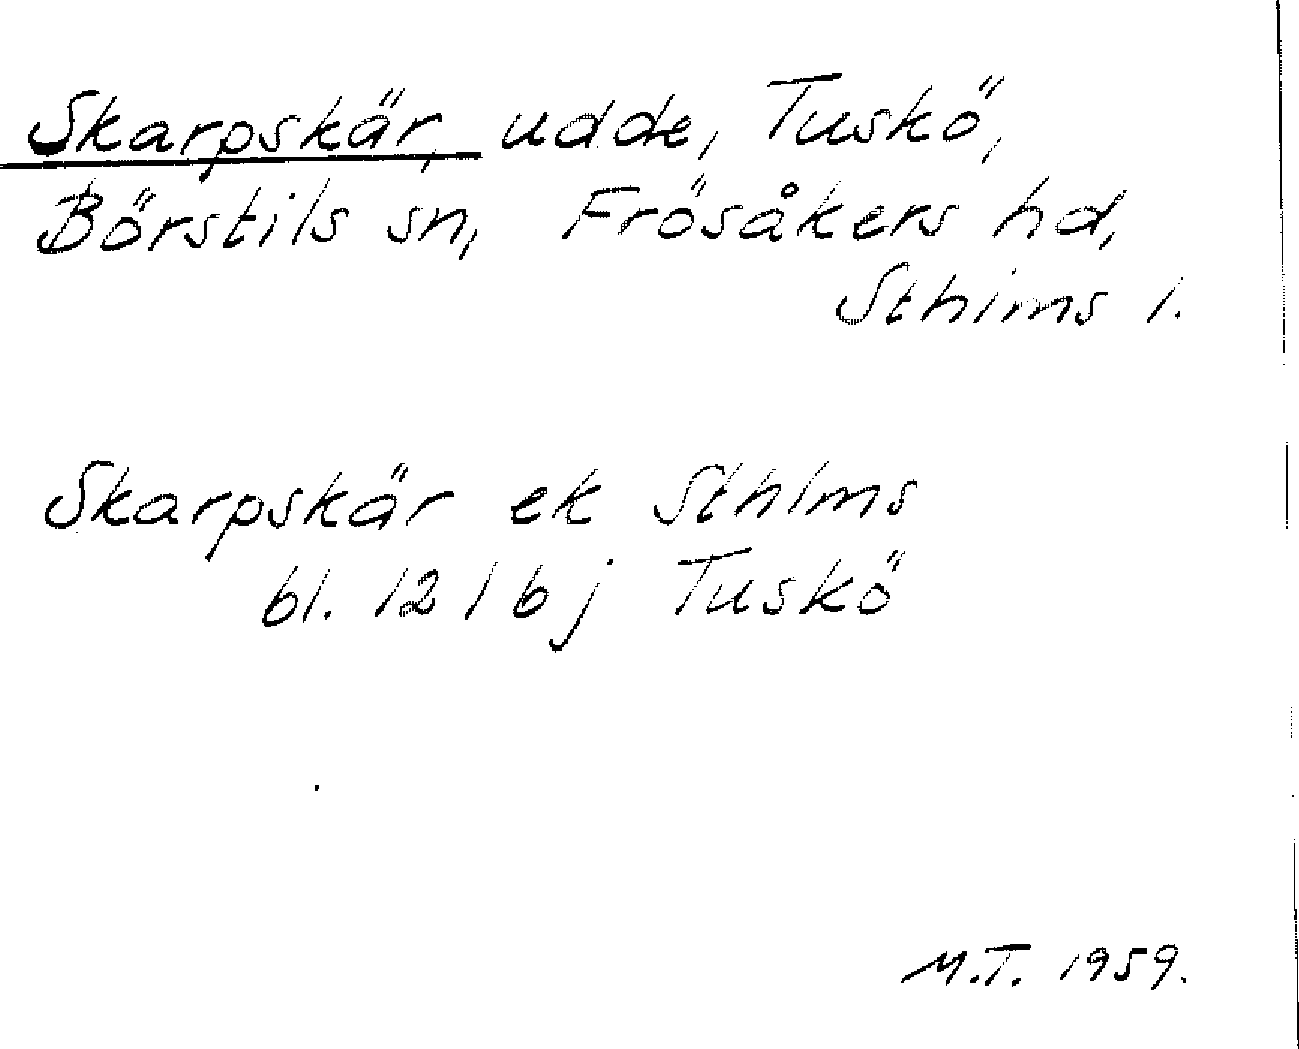 Skarpskär, udde, Tuskö,
Börstils sn, Frösåkers hd,
Sthlms l.
Skarpskär ek Sthlms
bl. 12 l b j Tuskö
M.T. 1959.